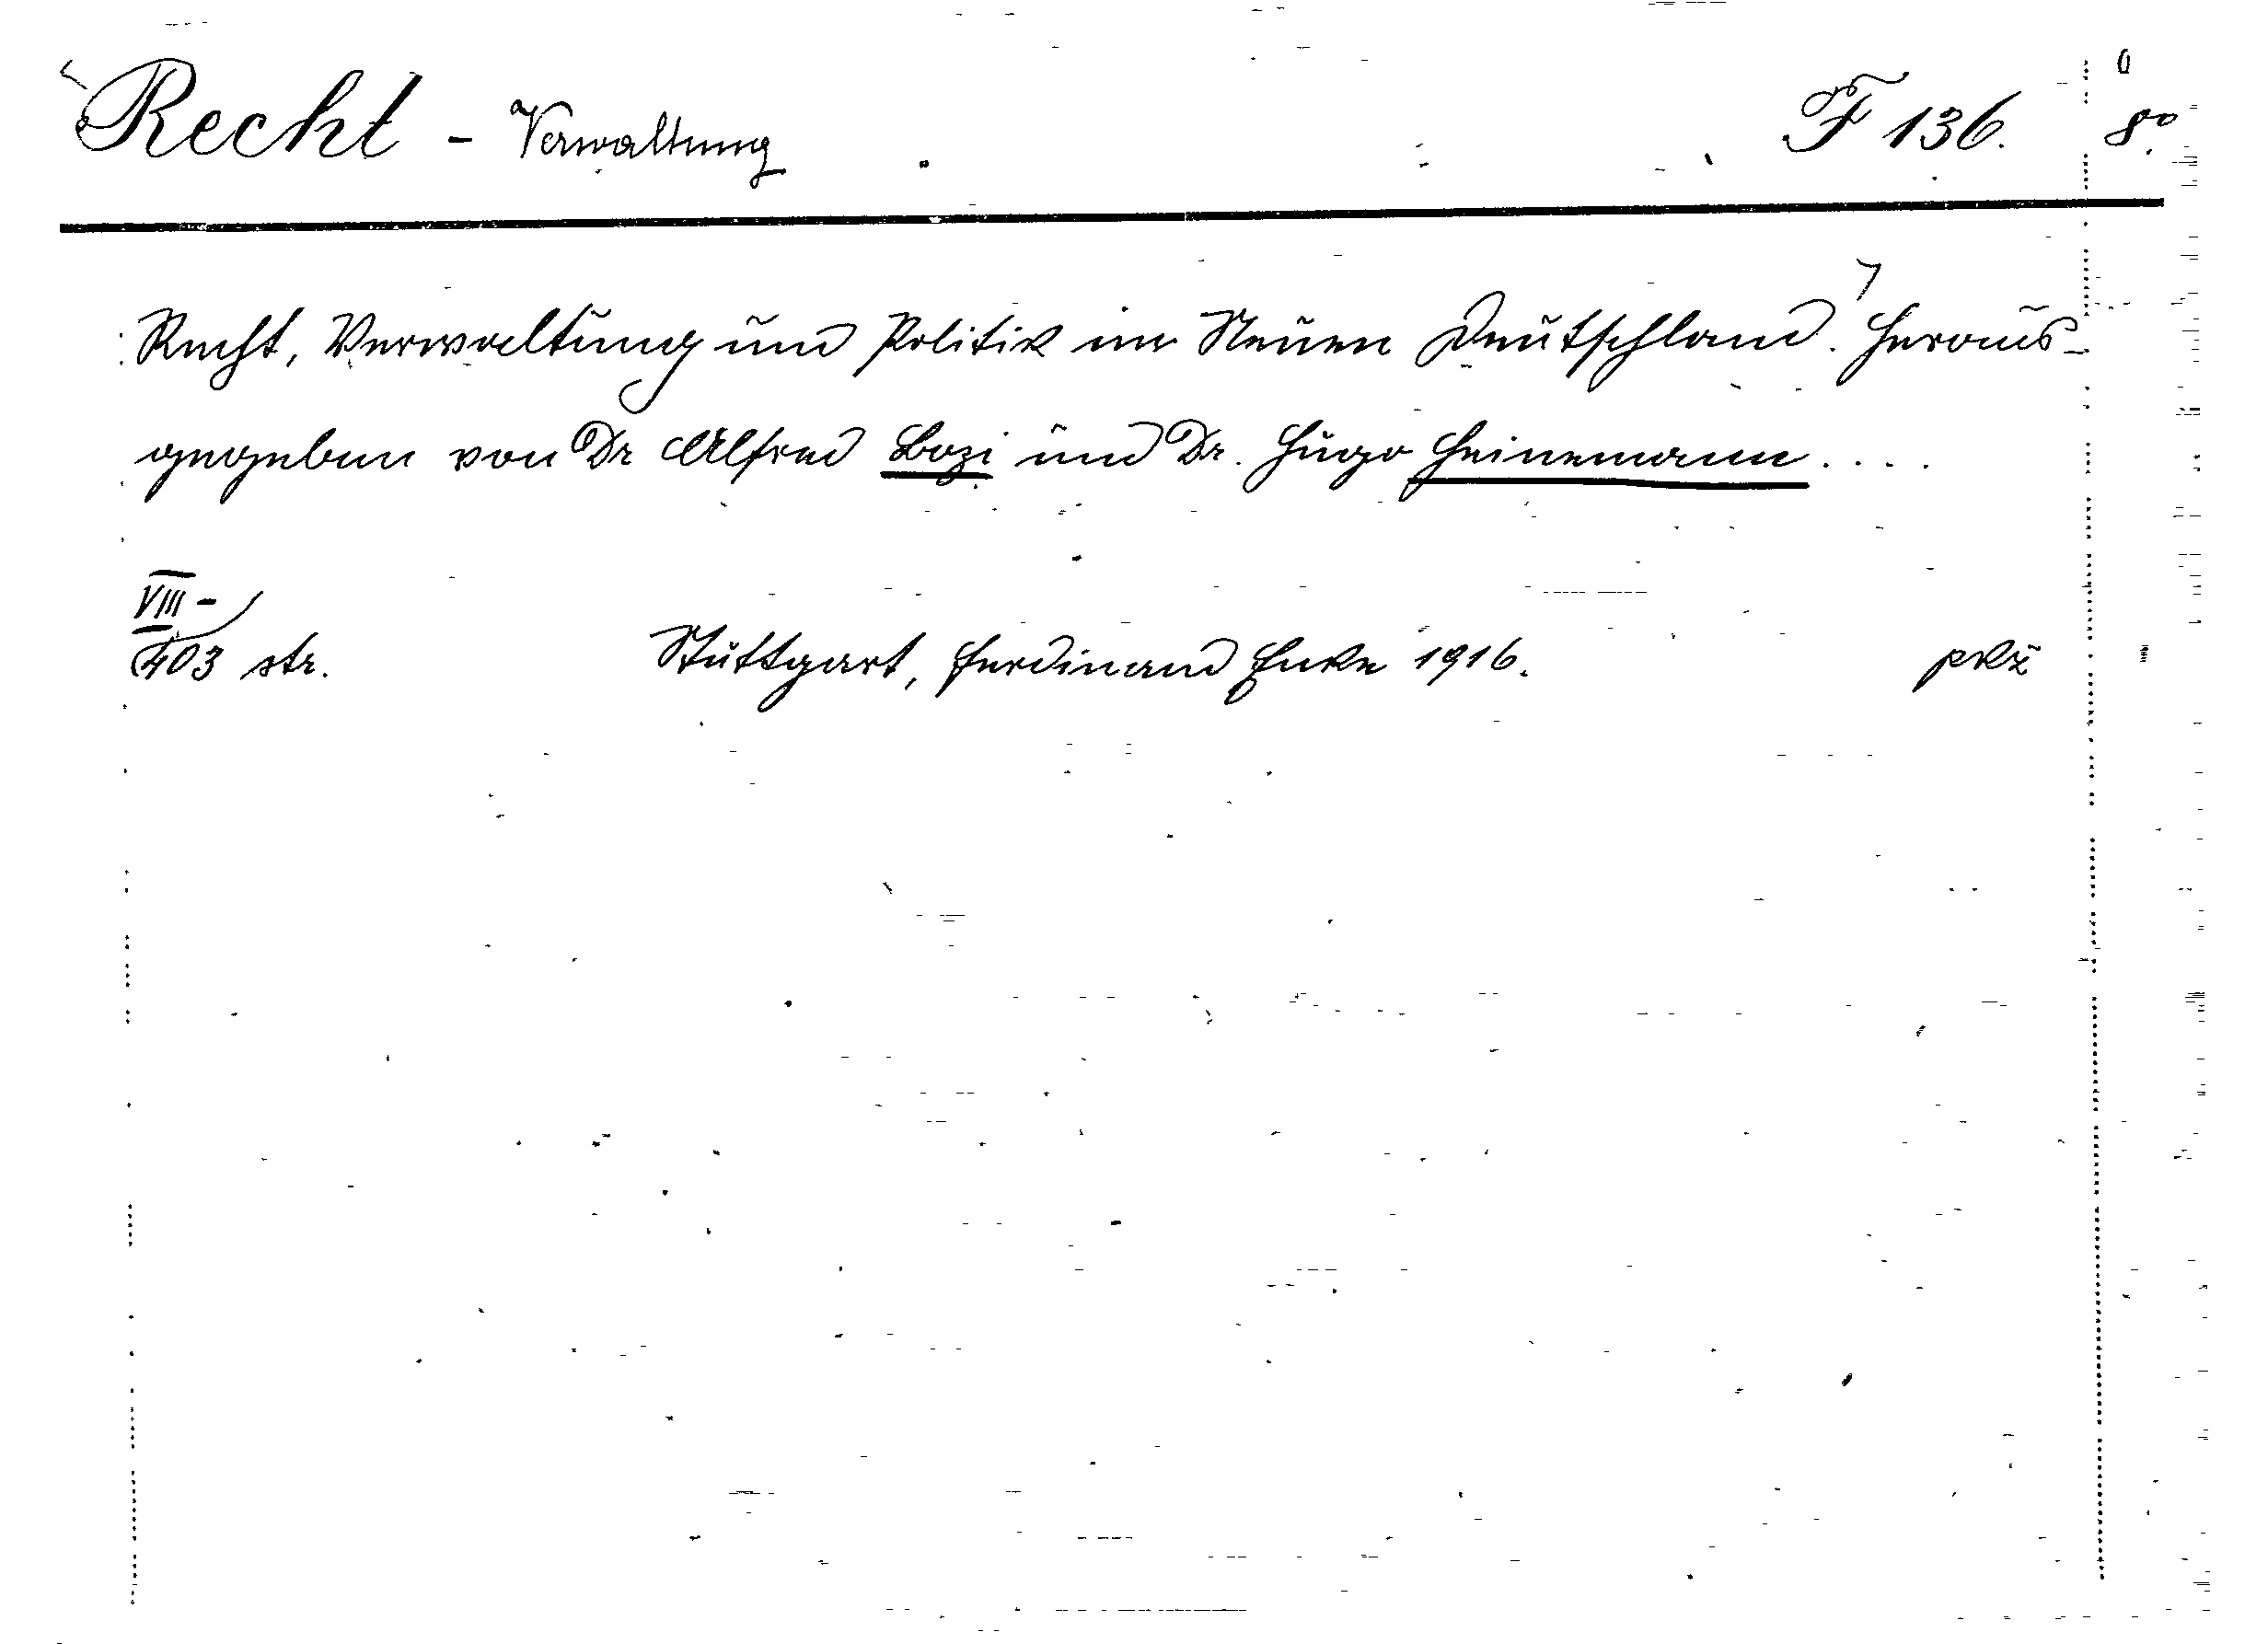 Recht - Verwaltung F 136. 8°
Recht, Verwaltung und Politik im Neuen Deutschland. Heraus-
gegeben von Dr Alfred Bozi und Dr. Hugo Heinemann....
VIII -
403 str. Stuttgart, Ferdinand Enke 1916. pkž